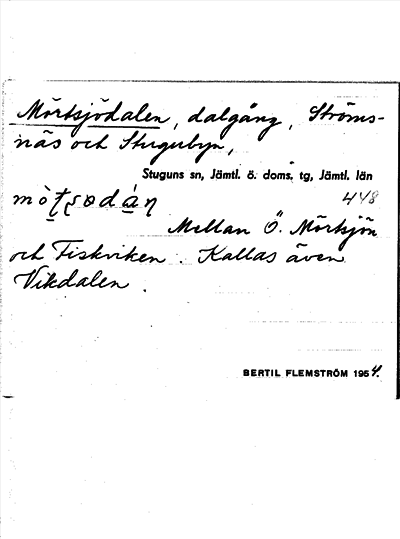 Mörtsjödalen, dalgång, Ströms-
näs och Stugubyn,
Stuguns sn, Jämtl. ö. doms. tg, Jämtl. län
448
Mellan Ö. Mörtsjön
och Fiskviken. Kallas även
Vikdalen.
BERTIL FLEMSTRÖM 1954.